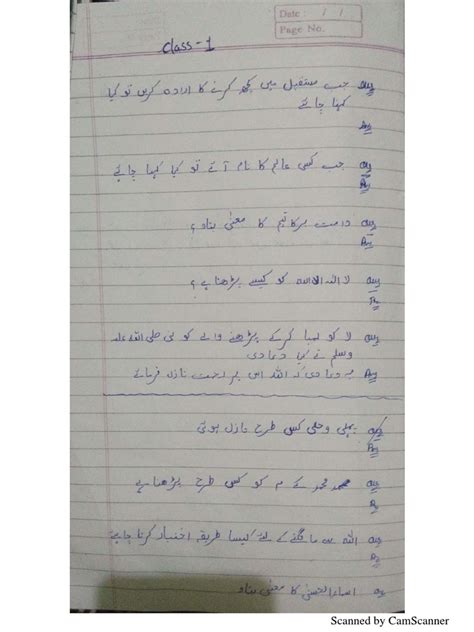 Date : / /
Page No.
Class-1
Que جب مستقبل میں کچھ کرنے کا ارادہ کریں تو کیا
کہنا چاہئے
Ans
Que جب کسی عالم کا نام آئے تو کیا کہنا چاہئے
Ans
Que دامت برکاتہم کا معنیٰ بتاؤ؟
Ans
Que لا الہ الا اللہ کو کیسے پڑھنا ہے؟
Ans
Que لا کو لمبا کر کے پڑھنے والے کو نبی صلی اللہ علیہ
وسلم نے کیا دعا دی
Ans یہ دعا دی کہ اللہ اس پر رحمت نازل فرمائے
Que پہلی وحی کس طرح نازل ہوئی
Ans
Que محمد کے م کو کس طرح پڑھنا ہے
Ans
Que اللہ سے مانگنے کے لئے کیسا طریقہ اختیار کرنا چاہئے
Ans
Que اسماء الحسنیٰ کا معنیٰ بتاؤ
Scanned by CamScanner